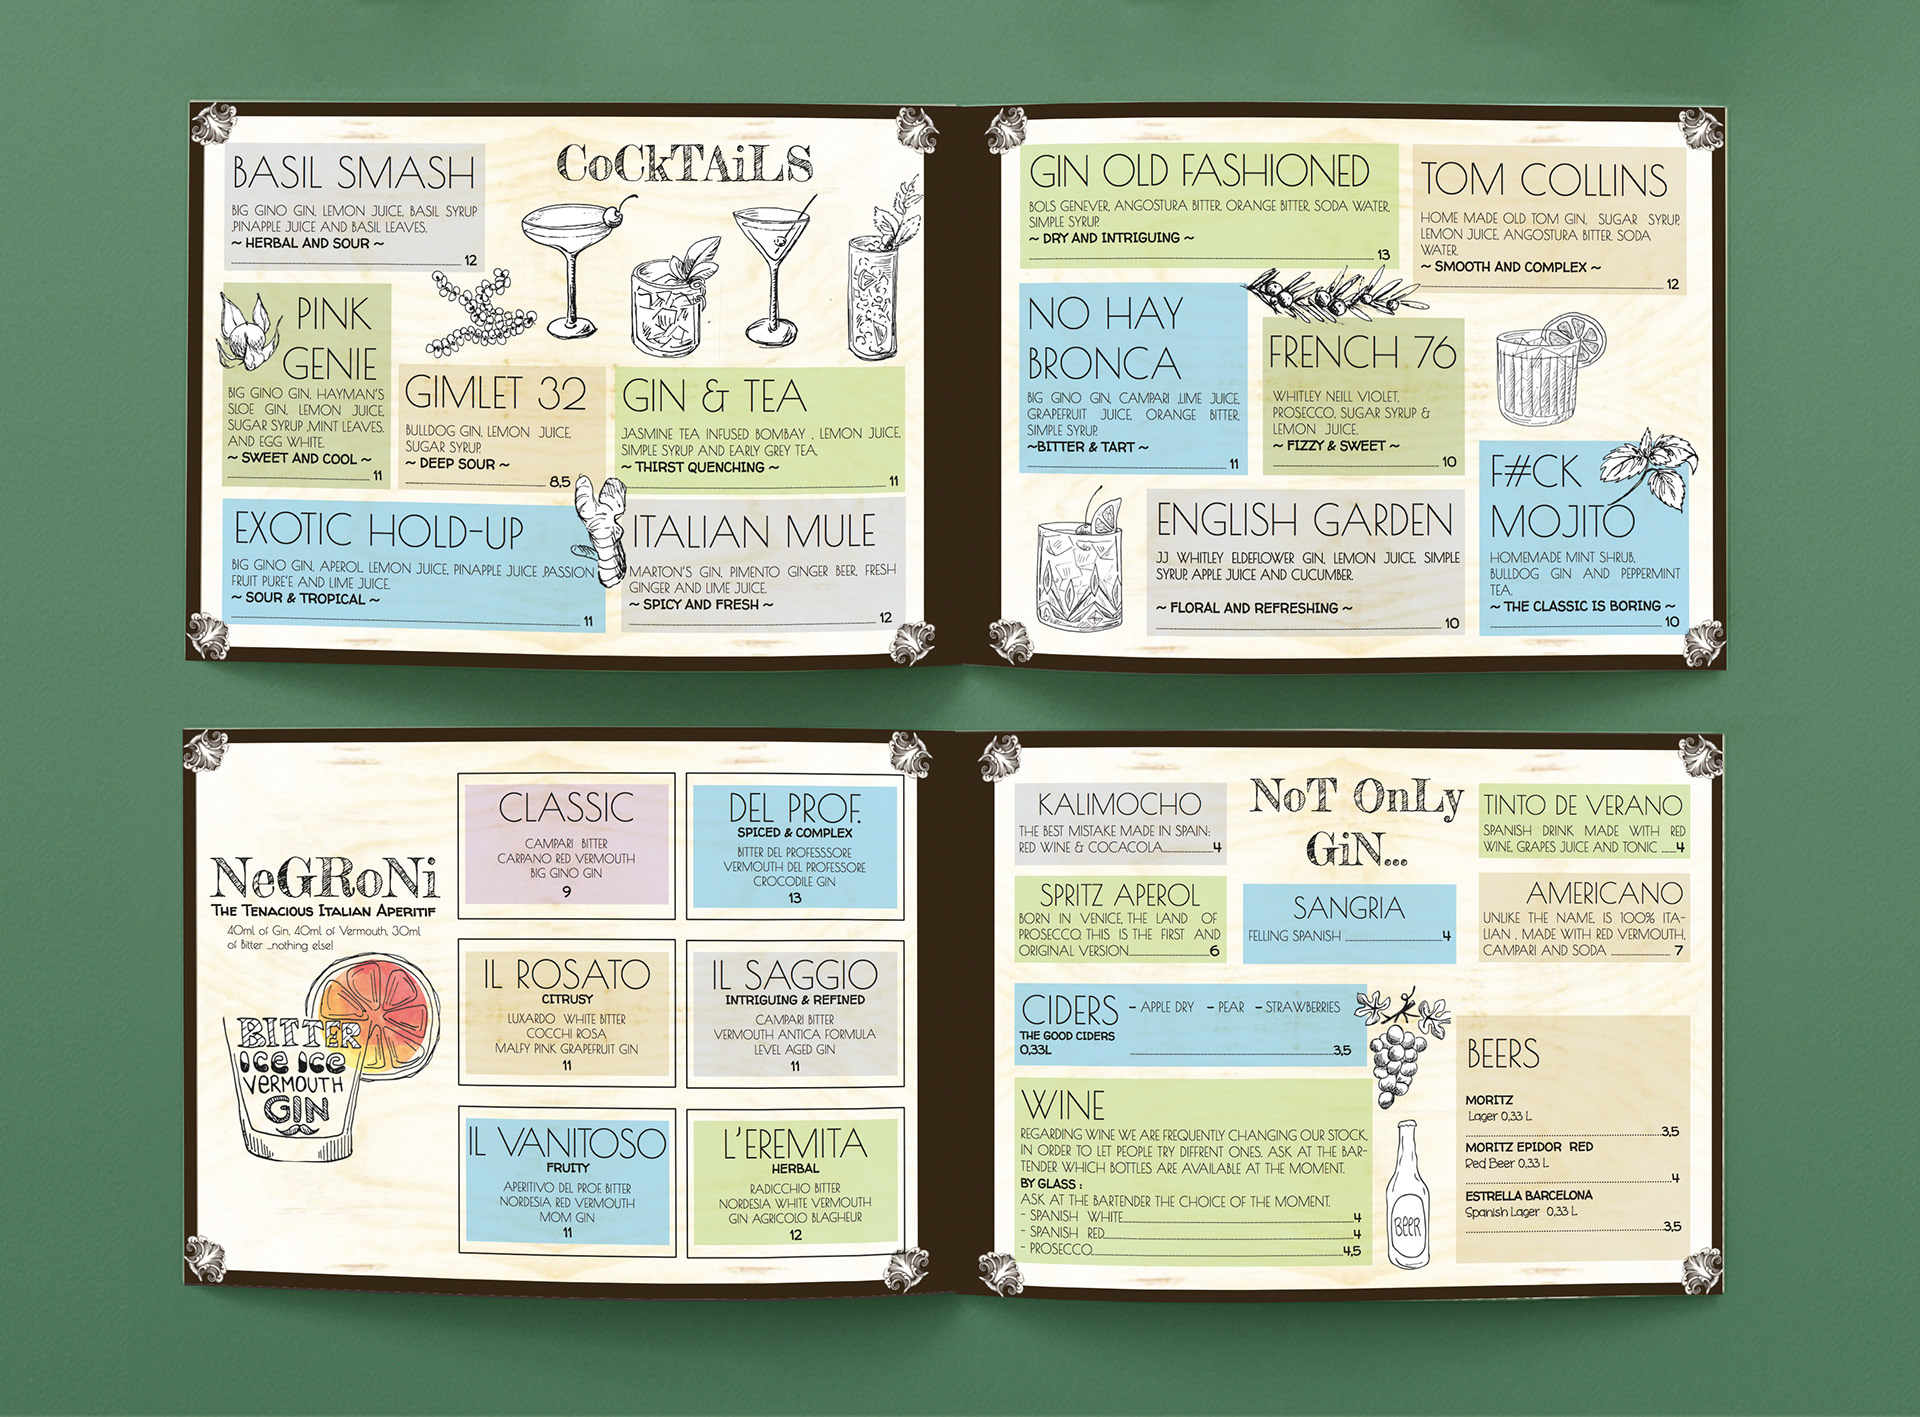 CoCkTAiLS
BASIL SMASH
BIG GINO GIN, LEMON JUICE, BASIL SYRUP
,PINAPPLE JUICE AND BASIL LEAVES.
~ HERBAL AND SOUR ~
12
PINK
GENIE
BIG GINO GIN, HAYMAN'S
SLOE GIN, LEMON JUICE,
SUGAR SYRUP ,MINT LEAVES,
AND EGG WHITE.
~ SWEET AND COOL ~
11
GIMLET 32
BULLDOG GIN, LEMON JUICE,
SUGAR SYRUP.
~ DEEP SOUR ~
8,5
GIN & TEA
JASMINE TEA INFUSED BOMBAY , LEMON JUICE,
SIMPLE SYRUP AND EARLY GREY TEA.
~ THIRST QUENCHING ~
11
EXOTIC HOLD-UP
BIG GINO GIN, APEROL, LEMON JUICE, PINAPPLE JUICE ,PASSION
FRUIT PURE'E AND LIME JUICE.
~ SOUR & TROPICAL ~
11
ITALIAN MULE
MARTON'S GIN, PIMENTO GINGER BEER, FRESH
GINGER AND LIME JUICE.
~ SPICY AND FRESH ~
12
GIN OLD FASHIONED
BOLS GENEVER, ANGOSTURA BITTER, ORANGE BITTER, SODA WATER,
SIMPLE SYRUP.
~ DRY AND INTRIGUING ~
13
TOM COLLINS
HOME MADE OLD TOM GIN, SUGAR SYRUP,
LEMON JUICE, ANGOSTURA BITTER, SODA
WATER.
~ SMOOTH AND COMPLEX ~
12
NO HAY
BRONCA
BIG GINO GIN, CAMPARI ,LIME JUICE,
GRAPEFRUIT JUICE, ORANGE BITTER,
SIMPLE SYRUP.
~BITTER & TART ~
11
FRENCH 76
WHITLEY NEILL VIOLET,
PROSECCO, SUGAR SYRUP &
LEMON JUICE.
~ FIZZY & SWEET ~
10
ENGLISH GARDEN
JJ WHITLEY ELDEFLOWER GIN, LEMON JUICE, SIMPLE
SYRUP, APPLE JUICE AND CUCUMBER.
~ FLORAL AND REFRESHING ~
10
F#CK
MOJITO
HOMEMADE MINT SHRUB,
BULLDOG GIN AND PEPPERMINT
TEA.
~ THE CLASSIC IS BORING ~
10
NeGRoNi
THE TENACIOUS ITALIAN APERITIF
40ml of Gin, 40ml of Vermouth, 30ml
of Bitter ...nothing else!
BITTER
ICE ICE
VERMOUTH
GIN
CLASSIC
CAMPARI BITTER
CARPANO RED VERMOUTH
BIG GINO GIN
9
DEL PROF.
SPICED & COMPLEX
BITTER DEL PROFESSSORE
VERMOUTH DEL PROFESSORE
CROCODILE GIN
13
IL ROSATO
CITRUSY
LUXARDO WHITE BITTER
COCCHI ROSA
MALFY PINK GRAPEFRUIT GIN
11
IL SAGGIO
INTRIGUING & REFINED
CAMPARI BITTER
VERMOUTH ANTICA FORMULA
LEVEL AGED GIN
11
IL VANITOSO
FRUITY
APERITIVO DEL PROF. BITTER
NORDESIA RED VERMOUTH
MOM GIN
11
L'EREMITA
HERBAL
RADICCHIO BITTER
NORDESIA WHITE VERMOUTH
GIN AGRICOLO BLAGHEUR
12
NoT OnLy
GiN...
KALIMOCHO
THE BEST MISTAKE MADE IN SPAIN:
RED WINE & COCACOLA 4
TINTO DE VERANO
SPANISH DRINK MADE WITH RED
WINE, GRAPES JUICE AND TONIC 4
SPRITZ APEROL
BORN IN VENICE, THE LAND OF
PROSECCO. THIS IS THE FIRST AND
ORIGINAL VERSION 6
SANGRIA
FELLING SPANISH 4
AMERICANO
UNLIKE THE NAME, IS 100% ITA-
LIAN , MADE WITH RED VERMOUTH,
CAMPARI AND SODA 7
CIDERS – APPLE DRY – PEAR – STRAWBERRIES
THE GOOD CIDERS
0,33L 3,5
WINE
REGARDING WINE WE ARE FREQUENTLY CHANGING OUR STOCK,
IN ORDER TO LET PEOPLE TRY DIFFRENT ONES. ASK AT THE BAR-
TENDER WHICH BOTTLES ARE AVAILABLE AT THE MOMENT.
BY GLASS :
ASK AT THE BARTENDER THE CHOICE OF THE MOMENT.
- SPANISH WHITE 4
- SPANISH RED 4
- PROSECCO 4,5
BEER
BEERS
MORITZ
Lager 0,33 L
3,5
MORITZ EPIDOR RED
Red Beer 0,33 L
4
ESTRELLA BARCELONA
Spanish Lager 0,33 L
3,5